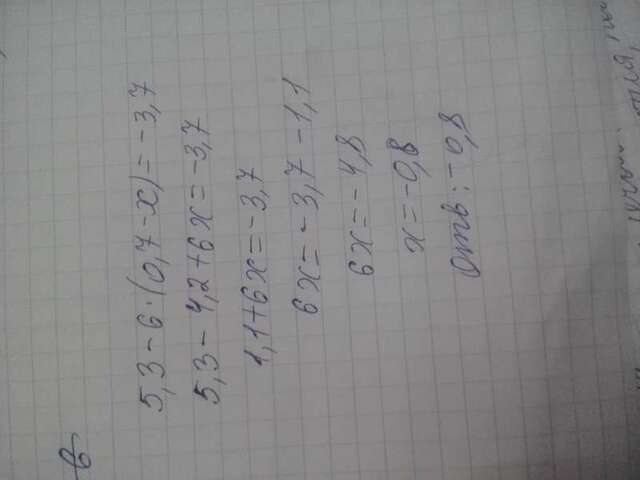 в
5,3 - 6 · (0,7 - x) = -3,7
5,3 - 4,2 + 6x = -3,7
1,1 + 6x = -3,7
6x = -3,7 - 1,1
6x = -4,8
x = -0,8
Отв: -0,8